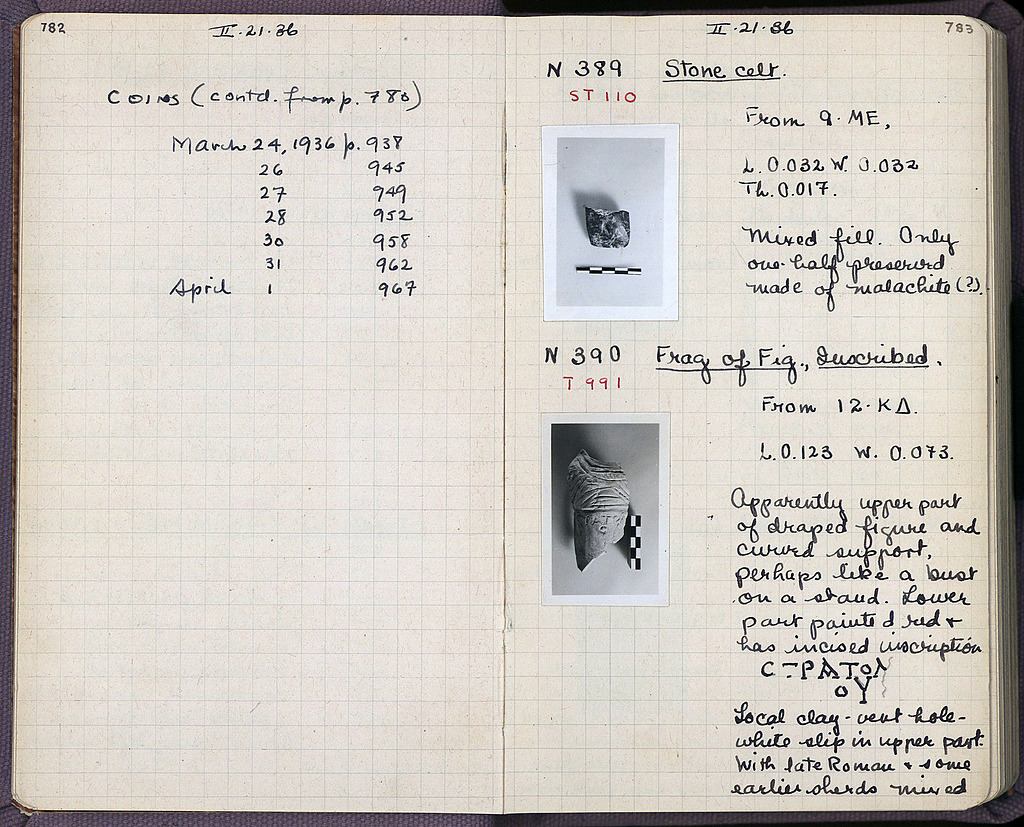 782
II·21·36
COINS (contd. from p. 780)
March 24, 1936 p. 938
26 945
27 949
28 952
30 958
31 962
April 1 967
II·21·36
783
N 389 Stone celt.
ST 110
From 9·ME,
L. 0.032 W. 0.032
Th. 0.017.
Mixed fill. Only
one-half preserved
made of malachite (?).
N 390 Frag of Fig., Inscribed.
T 991
From 12·ΚΔ.
L. 0.123 W. 0.073.
Apparently upper part
of draped figure and
curved support,
perhaps like a bust
on a stand. Lower
part painted red +
has incised inscription
ΟΥ
Local clay - vent hole -
white slip in upper part.
With late Roman + some
earlier sherds mixed